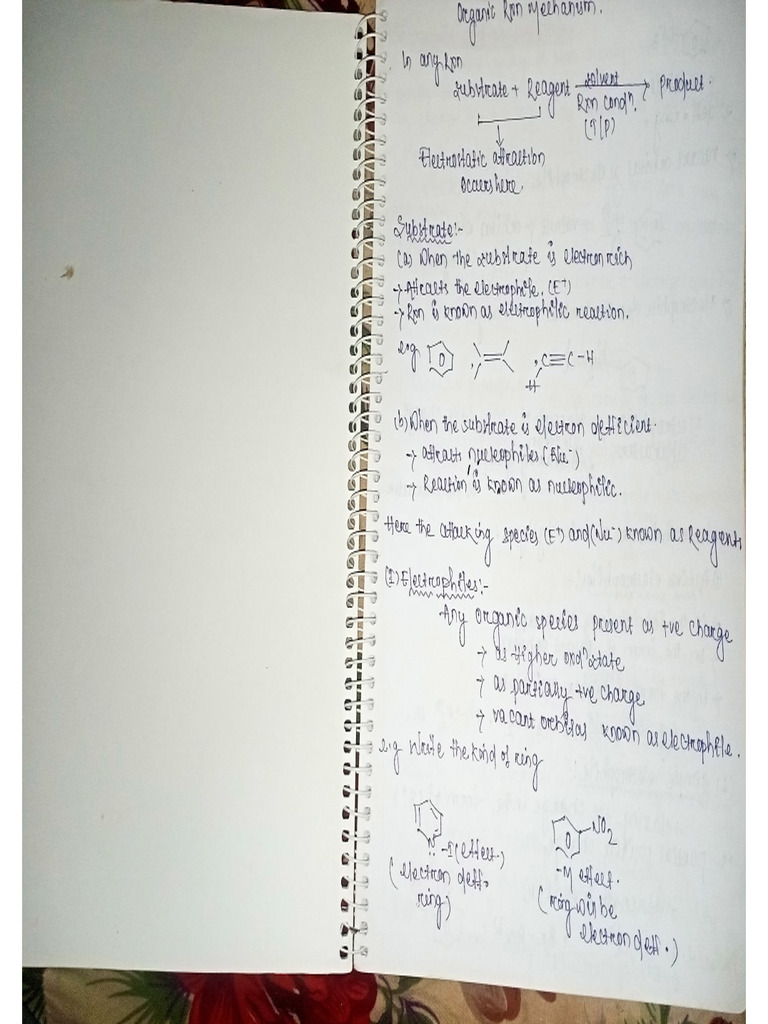 Organic Rxn Mechanism.
In any Rxn
Substrate + Reagent solvent → Product.
Rxn condn.
(T/P)
Electrostatic attraction
occurs here.
Substrate:-
(a) When the substrate is electron rich
→ Attracts the electrophile. (E+)
→ Rxn is known as electrophilic reaction.
e.g , , C≡C-H
H
(b) When the substrate is electron defficient.
→ attracts nucleophiles (Nu-)
→ Reaction is known as nucleophilic.
Here the attacking species (E+) and (Nu-) known as Reagents
(I) Electrophiles:-
Any organic species present as +ve charge
→ as Higher oxdn state
→ as partially +ve charge
→ vacant orbitas known as electrophile.
e.g Write the kind of ring
N -I (effect.) NO2
(electron deff. -M effect.
ring) (ring wil be
electron deff.)